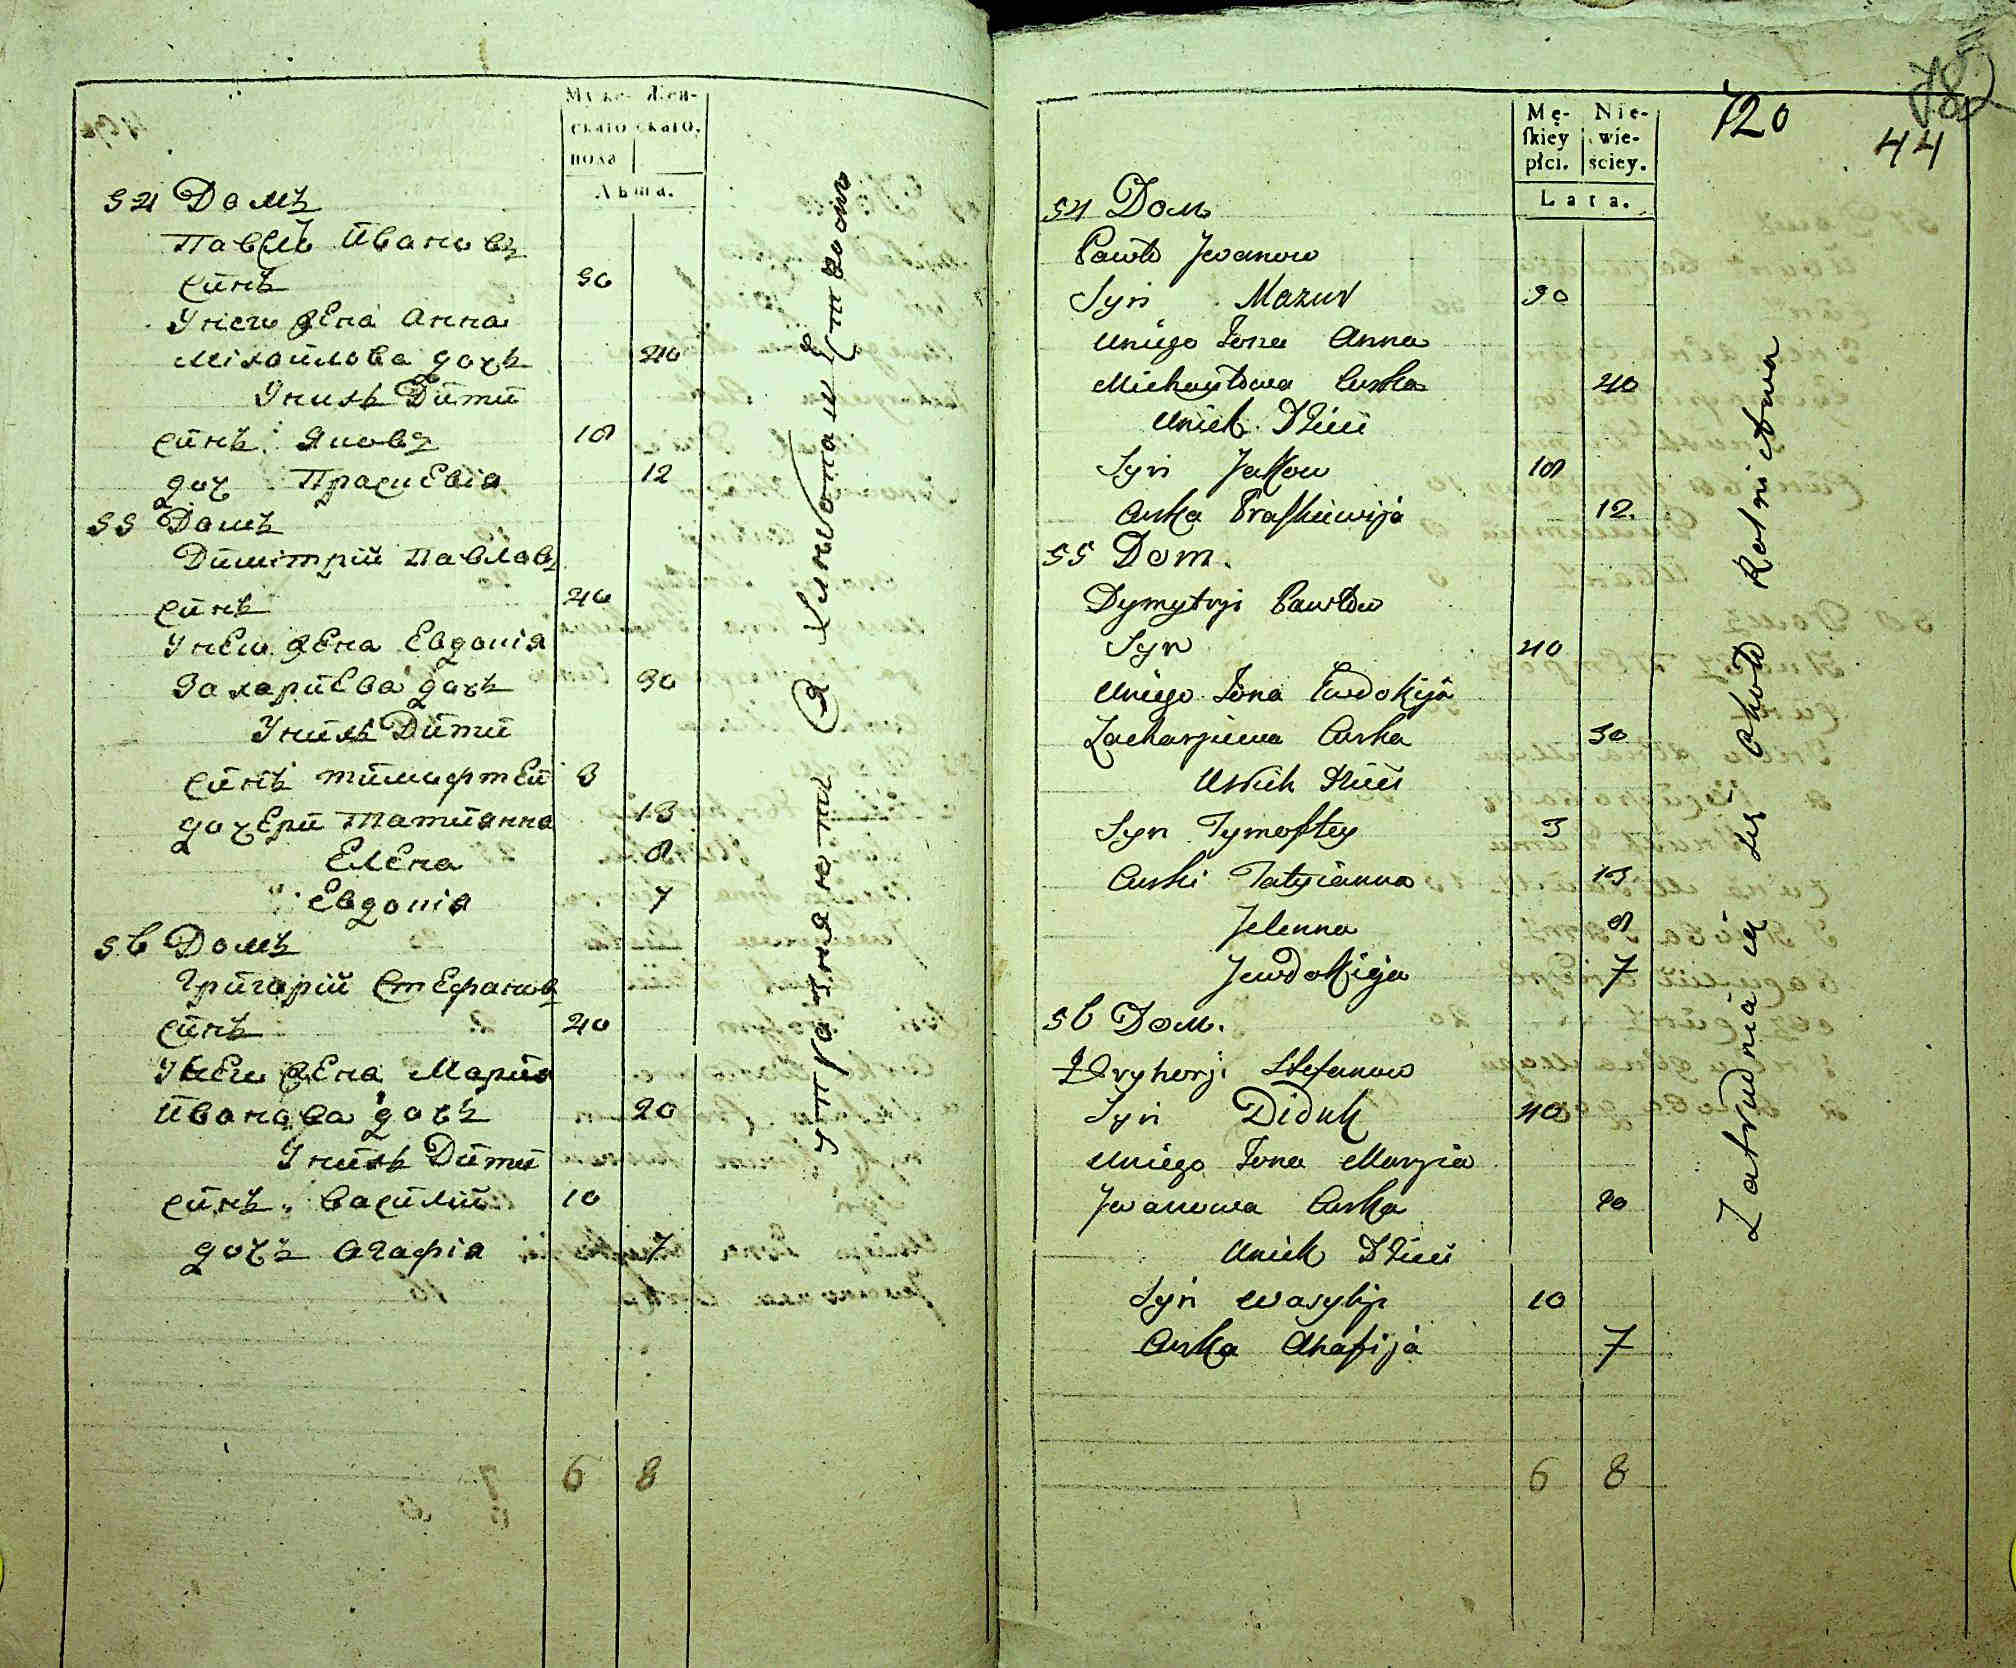 Муже- Жен-
скаго скаго,
пола
Лѣта.
54 Домъ
Павелъ Ивановъ
сынъ 50
У него жена Анна
Михайлова дочь 40
У нихъ Дѣти
сынъ Яковъ 18
доч Праскевія 12
55 Домъ
Димитрій Павловъ
сынъ 40
У него жена Евдокія
Захаріева дочь 30
У нихъ Дѣти
сынъ Тимофтей 3
дочери Татіанна 13
Елена 8
Евдокія 7
56 Домъ
Григорій Стефановъ
сынъ 40
У него жена Марія
Иванова дочь 20
У нихъ Дѣти
сынъ Василій 10
дочь Агафія 7
6 8
720
44
Mę- Nie-
ſkiey wie-
płci. ściey.
Lata.
54 Dom
Pawło Jwanow
Syn Mazur 50
Uniego Żona Anna
Michayłowa Curka 40
Unich Dzieci
Syn Jakow 18
Curka Praskiewija 12.
55 Dom.
Dymytryi Pawłow
Syn 40
Uniego Żona Ewdokija
Zacharjiewa Curka 30
Unich Dzieci
Syn Tymoftey 3
Curki Tatyianna 13
Jelenna 8
Jewdokija 7
56 Dom.
Hryhorji Stefanow
Syn Diduk 40
Uniego Żona Maryia
Jwanowa Curka 20
Unich Dzieci
Syn Wasylij 10
Curka Ahafija 7
6 8
Zatrudnia ią się około Rolnictwa